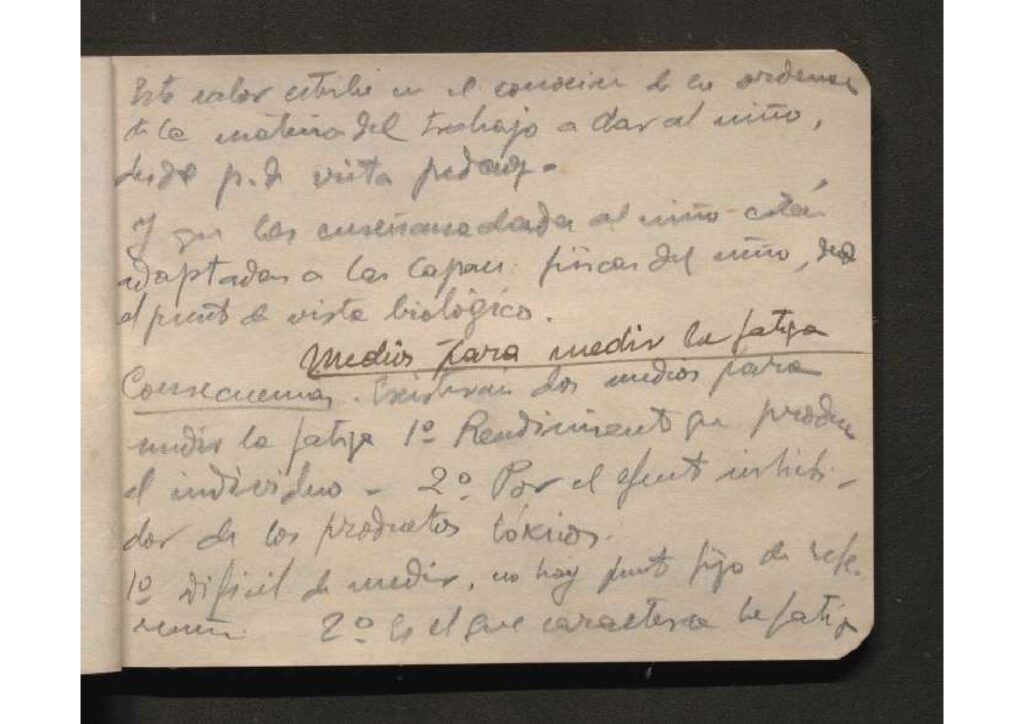 Este valor estriba en el conocim de la ordenan
de la materia del trabajo a dar al niño,
desde p. de vista pedag.
Y que las enseñan dadas al niño están
adaptadas a las capaci físicas del niño, desde
el punto de vista biológico.
Medios para medir la fatiga
Consecuencias. Existirán dos medios para
medir la fatiga 1º Rendimiento que produce
el individuo - 2º Por el efecto inhibi-
dor de los productos tóxicos.
1º Difícil de medir, no hay punto fijo de refe-
rencia. 2º Es el que caracteriza la fatiga